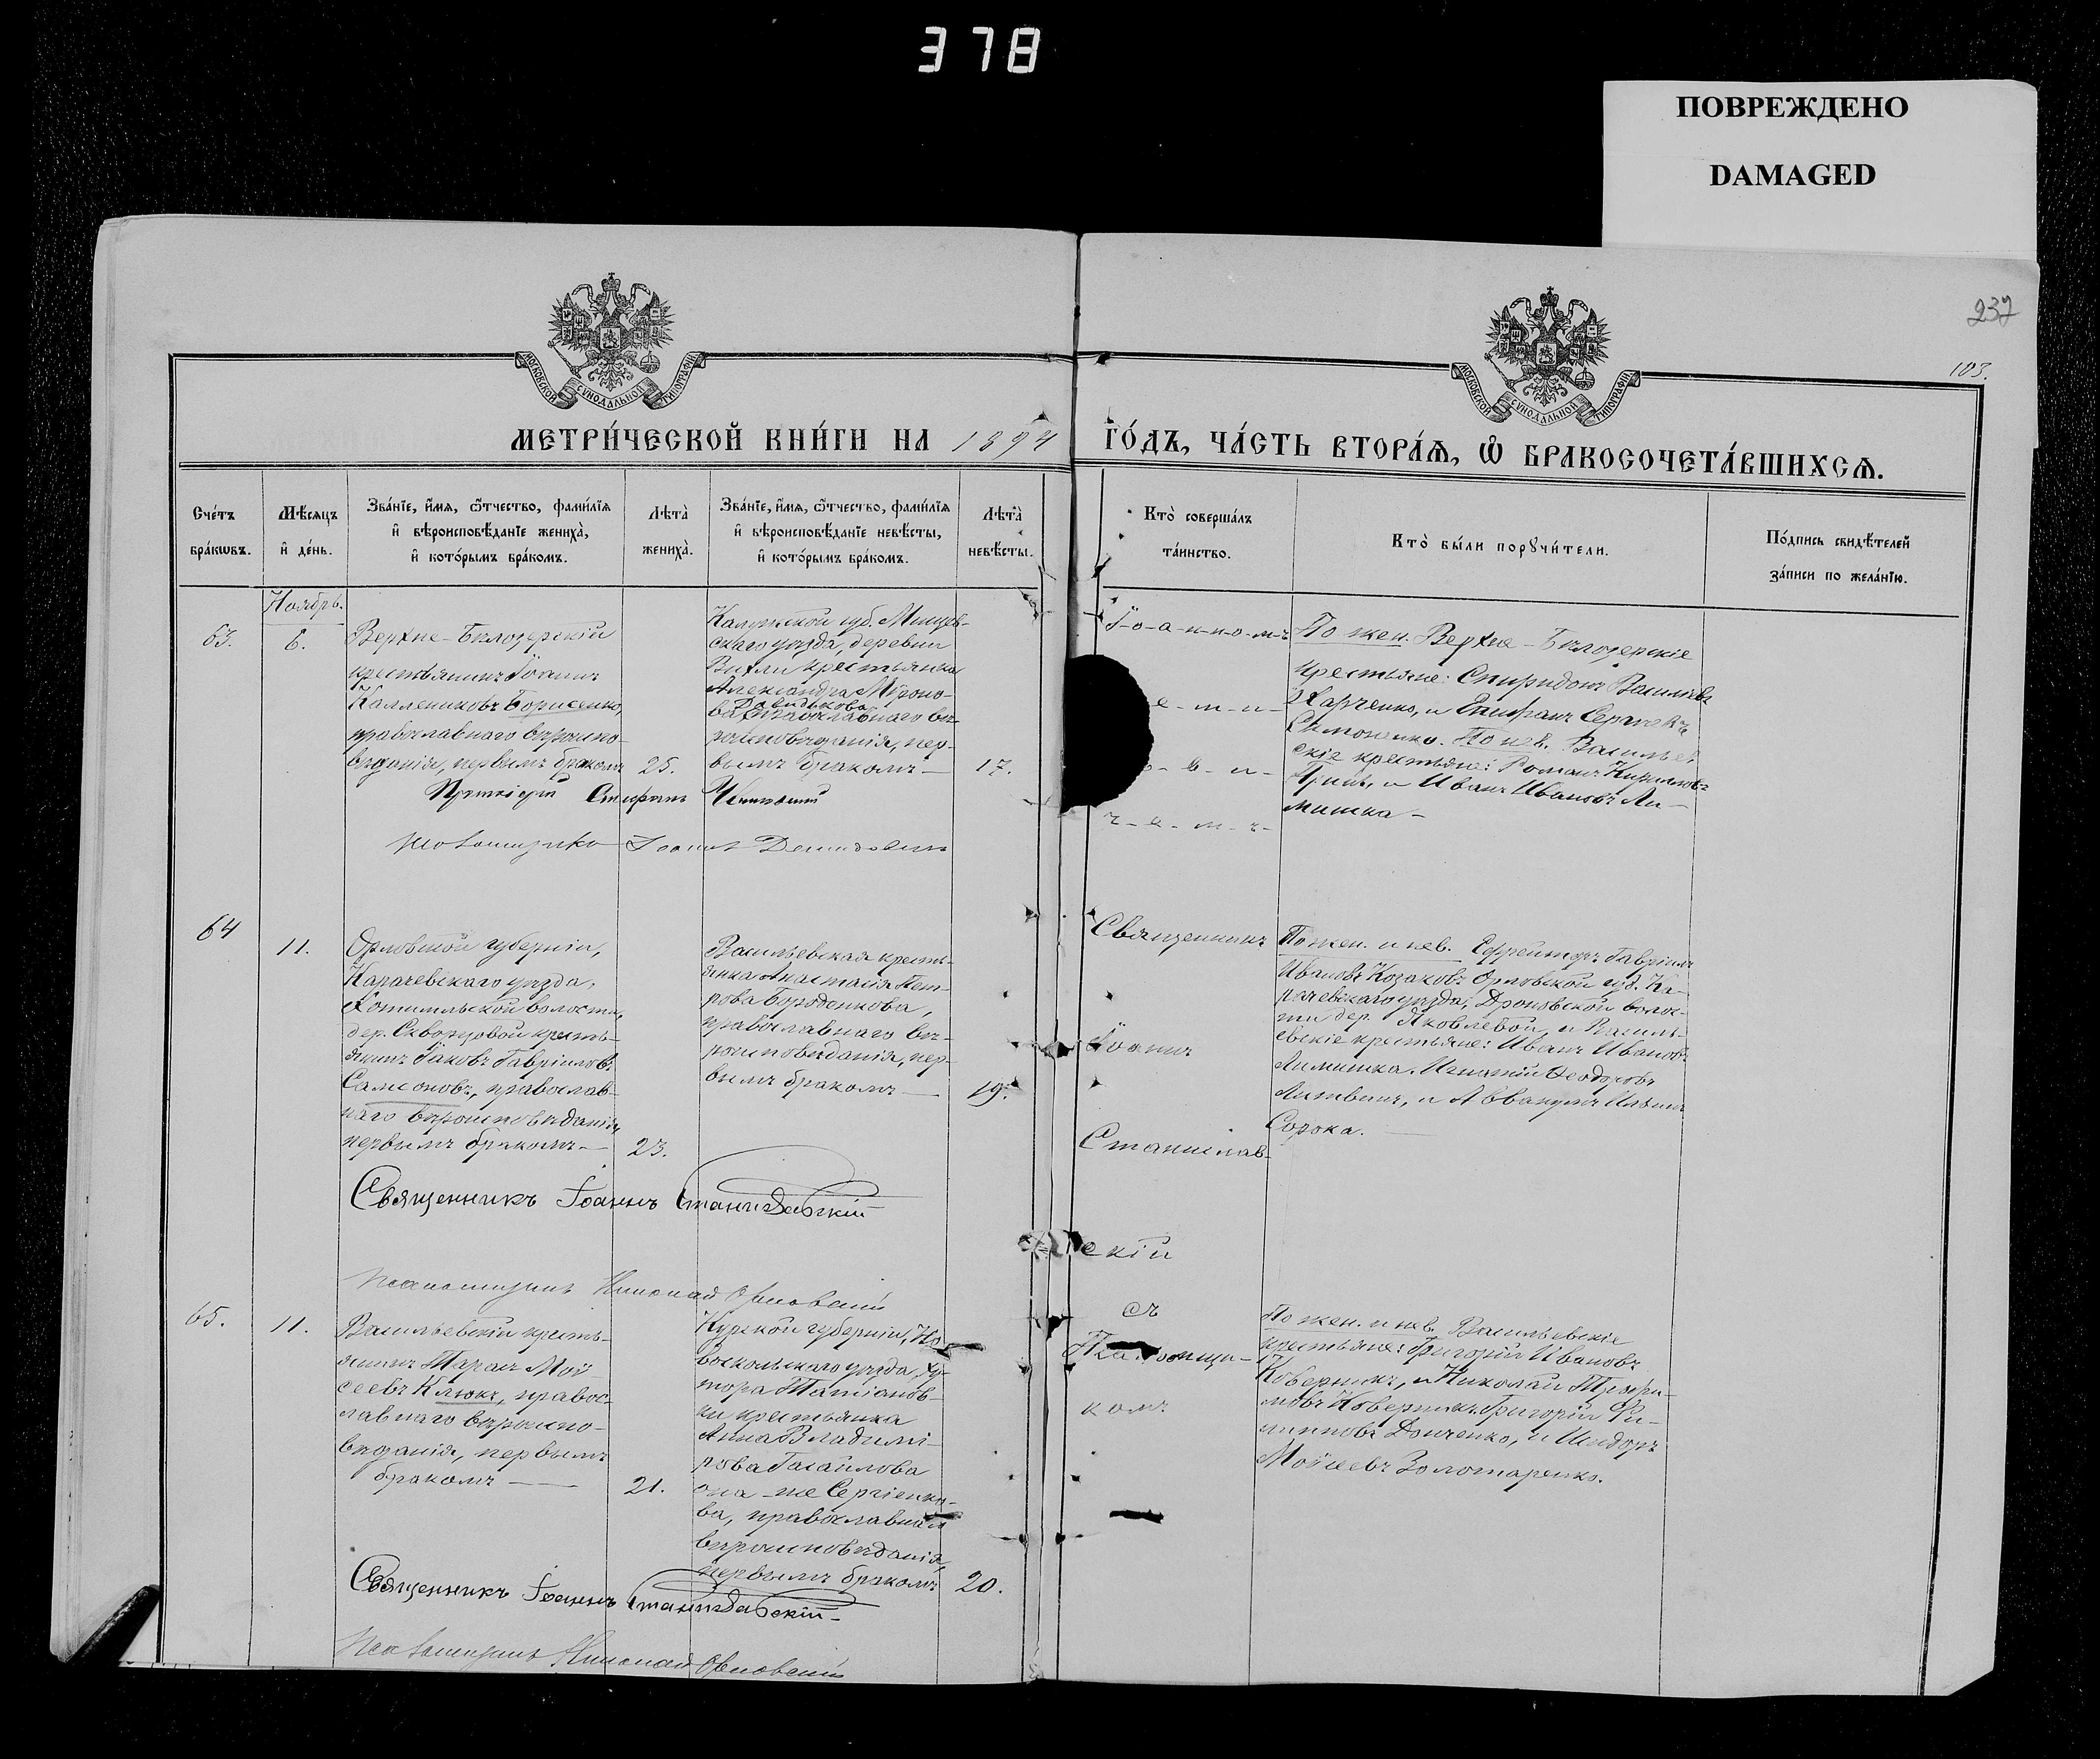 378
ПОВРЕЖДЕНО
DAMAGED
237
103.
МОСКОВСКОЙ СѴНОДАЛЬНОЙ ТИПОГРАФІИ
МОСКОВСКОЙ СѴНОДАЛЬНОЙ ТИПОГРАФІИ
МЕТРИ́ЧЕСКОЙ КНИ́ГИ НА 1894 ГО́ДЪ, ЧА́СТЬ ВТОРА́Ѧ, Ѽ БРАКОСОЧЕТА́ВШИХСѦ.
Сче́тъ
бра́кѡвъ.
Мѣ́сяцъ
и҆ де́нь.
Зва́нїе, и҆́мѧ, ѻ҆́тчество, фами́лїѧ
и҆ вѣроисповѣ́данїе жениха̀,
и҆ кото́рымъ бра́комъ.
Лѣта̀
жениха̀.
Зва́нїе, и҆́мѧ, ѻ҆́тчество, фами́лїѧ
и҆ вѣроисповѣ́данїе невѣ́сты,
и҆ кото́рымъ бра́комъ.
Лѣта̀
невѣ́сты.
Кто̀ соверша́лъ
та́инство.
Кто̀ бы́ли порꙋчи́тели.
По́дпись свидѣ́телей
за́писи по жела́нїю.
Ноябрь.
63.
6.
Верхне-Бѣлозерскій
крестьянинъ Іоаннъ
Каллениковъ Борисенко,
православнаго вѣроиспо-
вѣданія, первымъ бракомъ
25.
Калужской губ. Мещов-
скаго уѣзда, деревни
крестьянка
Александра Мироно-
ва Демидькова
православнаго вѣ-
роисповѣданія, пер-
вымъ бракомъ —
17.
Протоіерей Стефанъ
Іоаннъ
І-о-а-н-н-о-м-ъ
е-т-и-
о-в-и-
ч-е-м-ъ-
По жен. Верхне-Бѣлозерскіе
крестьяне: Спиридонъ Васильевъ
Харченко, и Епифанъ Сергѣевъ
Симоненко. По нев. Васильев-
скіе крестьяне: Романъ Кирилловъ
и Иванъ Ивановъ Ли-
мишка —
64
11.
Орловской губерніи,
Карачевскаго уѣзда,
волости,
дер. Скворцовой кресть-
янинъ Іаковъ Гавріиловъ
Самсоновъ, православ-
наго вѣроисповѣданія,
первымъ бракомъ —
23.
Васильевская кресть-
янка Анастасія Пет-
рова Бороденкова,
православнаго вѣ-
роисповѣданія, пер-
вымъ бракомъ —
19.
Священникъ
Іоаннъ
Станислав-
скій
По жен. и нев. Ефрейторъ Гавріилъ
Ивановъ Козаковъ Орловской губ. Ка-
рачевскаго уѣзда, Дроновской волос-
ти дер. Яковлевой, и Василь-
евскіе крестьяне: Иванъ Ивановъ
Лимишка. Игнатій Ѳеодоровъ
Литвинъ, и Аввакумъ Ильинъ
Сорока. —
Священникъ Іоаннъ Станиславскій
Псаломщикъ Николай Орловскій
65.
11.
Васильевскій кресть-
янинъ Тарасъ Мои-
сеевъ Клюкъ, правос-
лавнаго вѣроиспо-
вѣданія, первымъ
бракомъ —
21.
Курской губерніи, Но-
воскольскаго уѣзда, ху-
тора Татіанов-
ки крестьянка
Анна Владимі-
рова
она-же Сергіенко-
ва, православнаго
вѣроисповѣданія,
первымъ бракомъ
20.
съ
Псаломщи-
комъ
По жен. и нев. Васильевскіе
крестьяне: Григорій Ивановъ
Коверникъ, и Николай Трофи-
мовъ Коверникъ. Григорій Фи-
липповъ Донченко, и Исидоръ
Моисеевъ Золотаренко.
Священникъ Іоаннъ Станиславскій
Псаломщикъ Николай Орловскій